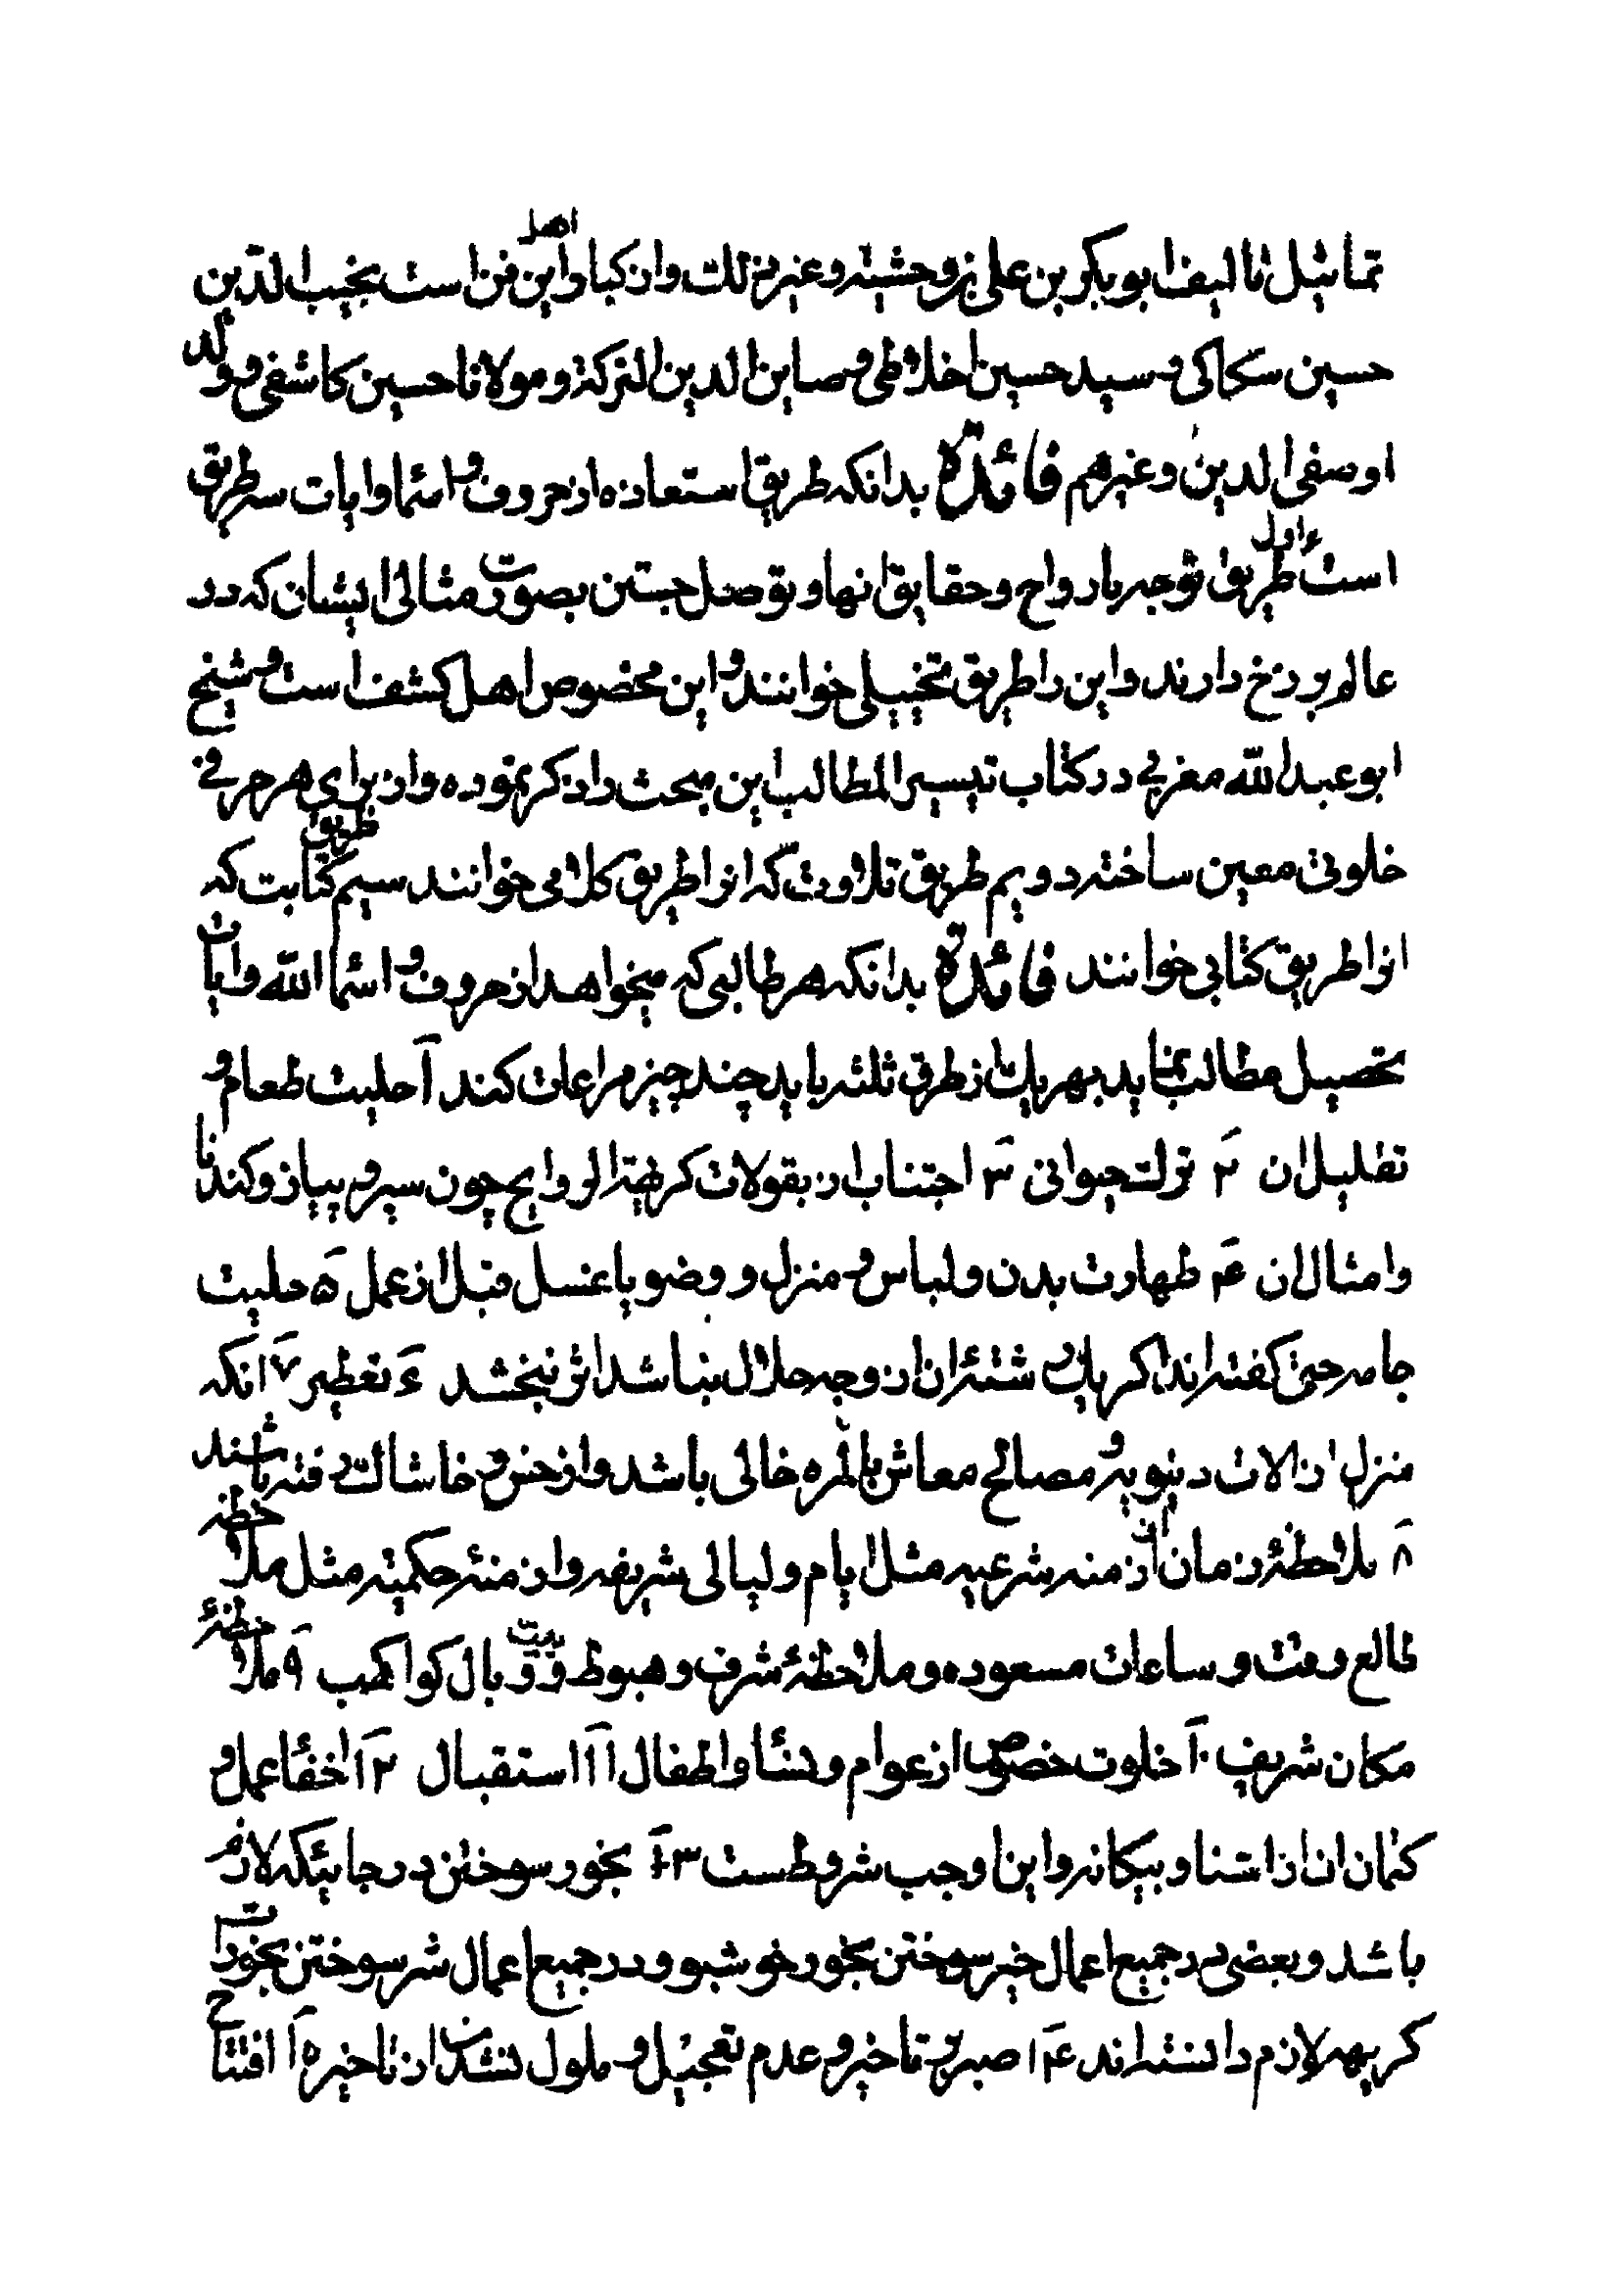 تماثیل تالیف ابو بکر بن علی بن وحشیه و غیر ذلک و از کبار اهل این فن است نجیب الدین
حسین سکاکی و سید حسین اخلاطی و صاین الدین الترکه و مولانا حسین کاشفی و ولد
او صفی الدین و غیرهم فائدة بدانکه طریق استعاذه از حروف و اسما و ایات سه طریق
است اول طریق توجه بارواح و حقایق انها و توصل جستن بصورت مثالی ایشان که در
عالم برزخ دارند و این را طریق تخییلی خوانند و این مخصوص اهل کشف است و شیخ
ابو عبد الله مغربی در کتاب تیسیر المطالب این مبحث را ذکر نموده و از برای هر حرفی
خلوتی معین ساخته دویم طریق تلاوت که انرا طریق کلامی خوانند سیم طریق کتابت که
انرا طریق کتابی خوانند فائدة بدانکه هر طالبی که میخواهد از حروف و اسماء الله و ایات
تحصیل مطالب نماید بهریک از طرق ثلثه باید چند چیز مراعات کند آ حلیت طعام و
تقلیل ان ۲ ترک حیوانی ۳ اجتناب از بقولات کریهة الروایح چون سیر و پیاز و کندنا
و امثال ان ۴ طهارت بدن و لباس و منزل و وضو یا غسل قبل از عمل ۵ حلیت
جامه حتی گفته اند اکر یک رشته ان از وجه حلال نباشد اثر نبخشد ۶ تعطیر ۷ انکه
منزل از الات دنیویه و مصالح معاش بالمره خالی باشد و از خس و خاشاک رفته باشند
۸ ملاحظهٔ زمان از ازمنه شرعیه مثل ایام و لیالی شریفه و ازمنهٔ حکمیّه مثل ملاحظه
طالع وقت و ساعات مسعوده و ملاحظهٔ شرف و هبوط و بیت و وبال کواکب ۹ ملاحظهٔ
مکان شریف ۱۰ خلوت خصوص از عوام و نساء و اطفال ۱۱ استقبال ۱۲ اخفاء عمل و
کتمان ان از اشنا و بیکانه و این اوجب شروطست ۱۳ بخور سوختن در جائیکه لازم
باشد و بعضی در جمیع اعمال خیر سوختن بخور خوشبو و در جمیع اعمال شر سوختن بخورات
کریهه لازم دانسته اند ۱۴ صبر و تاخیر و عدم تعجیل و ملول نشدن از تاخیر ۱۵ افتتاح